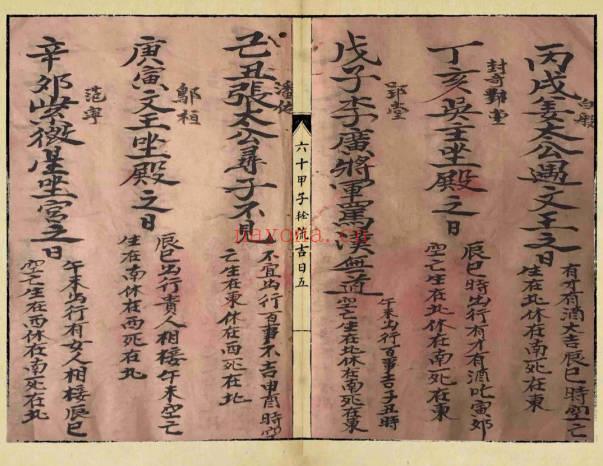 丙戌姜太公遇文王之日
有才有酒大吉辰巳時空亡
生在北休在南死在東
封奇對堂
丁亥吳王坐殿之日
辰巳時出行有才有酒吃寅卯
空亡生在北休在南死在東
邵堂
戊子李廣將軍罵漢無道
午未出行百事吉子丑時
空亡生在北休在南死在東
六十甲子轮流吉日五
潘佑
己丑張太公尋子不見
不宜出行百事不吉申酉時空
亡生在東休在西死在北
鄔桓
庚寅文王坐殿之日
辰巳出行貴人相接午未空亡
生在南休在西死在北
范寧
辛卯紫微星坐宮之日
午未出行有女人相接辰巳
空亡生在西休在南死在北